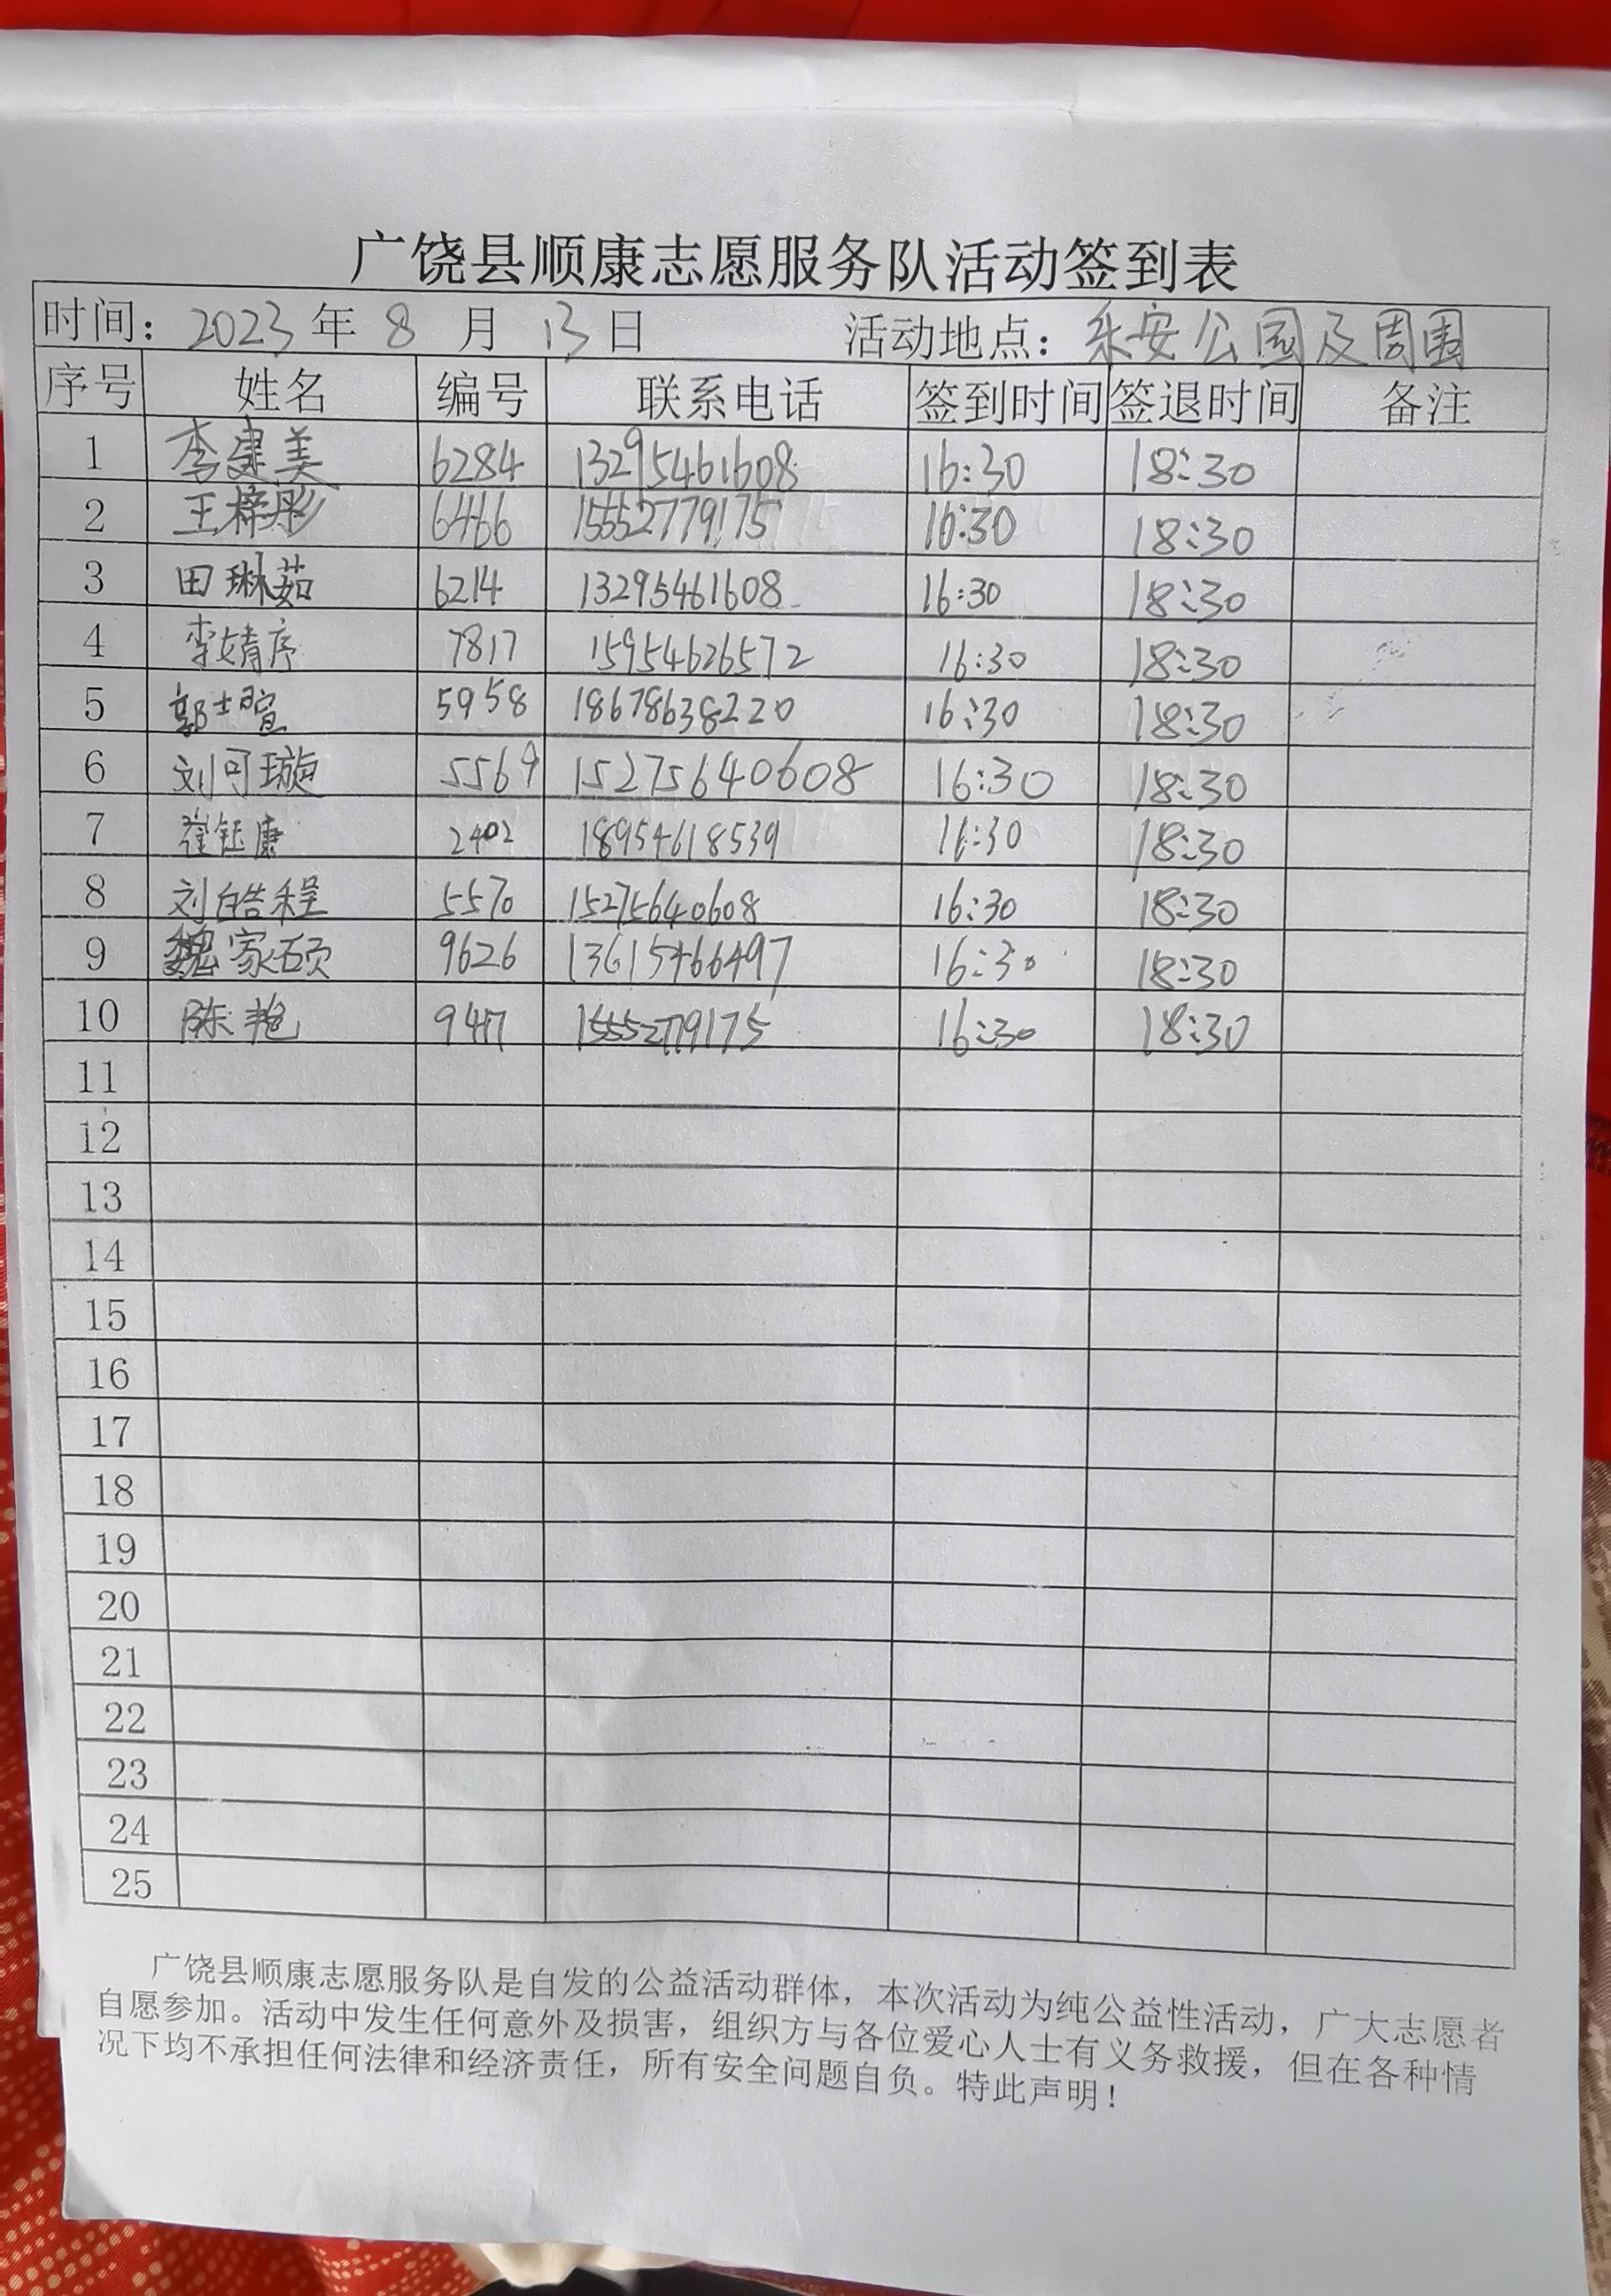 广饶县顺康志愿服务队活动签到表
时间：2023年8月13日 活动地点：乐安公园及周围
序号 姓名 编号 联系电话 签到时间 签退时间 备注
1 李建美 6284 13295461608 16:30 18:30
2 王梓彤 6466 15552779175 16:30 18:30
3 田琳茹 6214 13295461608 16:30 18:30
4 李婧序 7817 15954626572 16:30 18:30
5 郭士暄 5958 18678638220 16:30 18:30
6 刘可璇 5569 15275640608 16:30 18:30
7 崔钰康 2402 18954618539 16:30 18:30
8 刘皓程 5570 15275640608 16:30 18:30
9 魏家硕 9626 13615466497 16:30 18:30
10 陈艳 9417 15552779175 16:30 18:30
11
12
13
14
15
16
17
18
19
20
21
22
23
24
25
广饶县顺康志愿服务队是自发的公益活动群体，本次活动为纯公益性活动，广大志愿者
自愿参加。活动中发生任何意外及损害，组织方与各位爱心人士有义务救援，但在各种情
况下均不承担任何法律和经济责任，所有安全问题自负。特此声明！